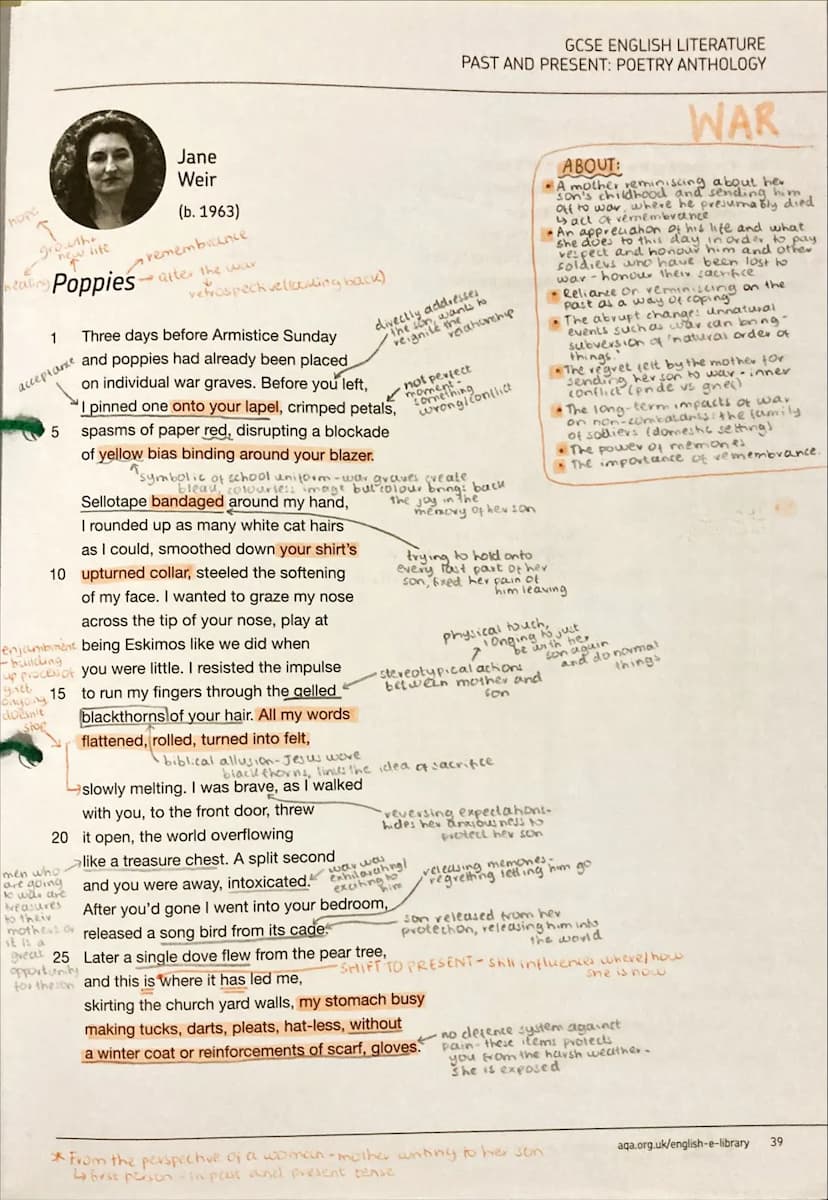 GCSE ENGLISH LITERATURE
PAST AND PRESENT: POETRY ANTHOLOGY
WAR
Jane
Weir
(b. 1963)
ABOUT:
• A mother reminiscing about her
son's childhood and sending him
off to war, where he presumably died
↳ act of remembrance
• An appreciation of his life and what
she does to this day in order to pay
respect and honour him and other
soldiers who have been lost to
war - honour their sacrifice
• Reliance on reminiscing on the
past as a way of coping
• The abrupt change: unnatural
events such as war can bring -
subversion of 'natural order of
things.'
• The regret felt by the mother for
sending her son to war - inner
conflict (pride vs grief)
• The long-term impacts of war
on non-combatants: the family
of soldiers (domestic setting)
• The power of memories
• The importance of remembrance.
hope
growth +
new life
healing
Poppies
→ remembrance
→ after the war
retrospective (looking back)
directly addresses
the son, wants to
reignite the
relationship
1 Three days before Armistice Sunday
and poppies had already been placed
on individual war graves. Before you left,
acceptance
I pinned one onto your lapel, crimped petals,
not perfect
moment -
something
wrong/conflict
5 spasms of paper red, disrupting a blockade
of yellow bias binding around your blazer.
symbolic of school uniform - war graves create
bleak, colourless image but colour brings back
the joy in the
memory of her son
Sellotape bandaged around my hand,
I rounded up as many white cat hairs
as I could, smoothed down your shirt's
10 upturned collar, steeled the softening
of my face. I wanted to graze my nose
trying to hold onto
every last part of her
son, fixed her pain of
him leaving
across the tip of your nose, play at
being Eskimos like we did when
you were little. I resisted the impulse
physical touch,
longing to just
be with her
son again
and do normal
things
stereotypical actions
between mother and
son
enjambment
- building
up process of
grief
ongoing
doesn't
stop
15 to run my fingers through the gelled
blackthorns of your hair. All my words
flattened, rolled, turned into felt,
biblical allusion - Jesus wore
blackthorns, links the idea of sacrifice
slowly melting. I was brave, as I walked
with you, to the front door, threw
reversing expectations -
hides her anxiousness to
protect her son
20 it open, the world overflowing
like a treasure chest. A split second
and you were away, intoxicated.
war was
exhilarating/
exciting to
him
men who
are going
to war are
treasures
to their
mothers or
it is a
great
opportunity
for the son
After you'd gone I went into your bedroom,
released a song bird from its cage.
releasing memories -
regretting letting him go
son released from her
protection, releasing him into
the world
25 Later a single dove flew from the pear tree,
and this is where it has led me,
SHIFT TO PRESENT - still influences where/how
she is now
skirting the church yard walls, my stomach busy
making tucks, darts, pleats, hat-less, without
a winter coat or reinforcements of scarf, gloves.
no defence system against
pain - these items protects
you from the harsh weather -
she is exposed
aqa.org.uk/english-e-library 39
* From the perspective of a woman - mother writing to her son
↳ first person - in past and present tense